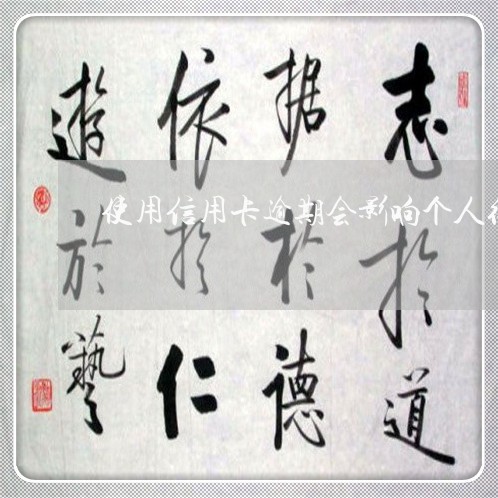 志於道
据於德
依於仁
遊於藝
使用信用卡逾期会影响个人